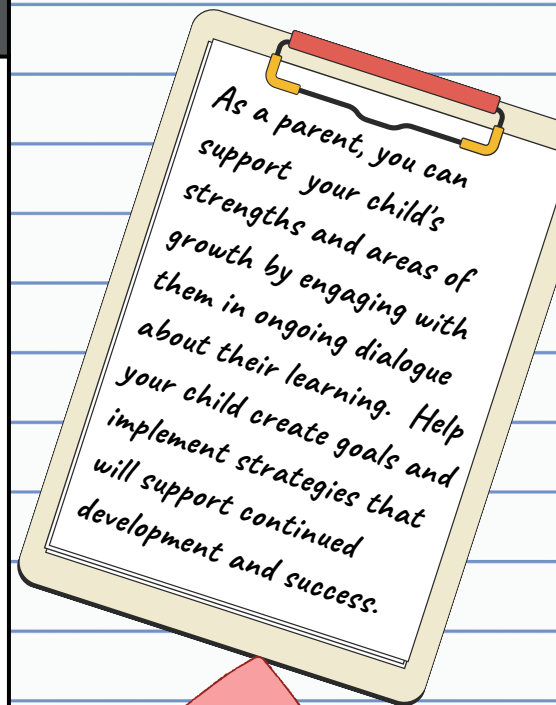 As a parent, you can
support your child's
strengths and areas of
growth by engaging with
them in ongoing dialogue
about their learning. Help
your child create goals and
implement strategies that
will support continued
development and success.